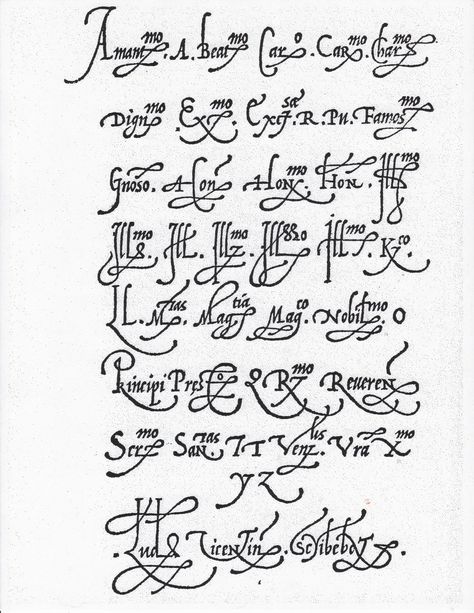 Amant^mo. A. Beat^mo Car^o. Car^mo. Char^mo
Dign^mo. Ex^mo. Ex^sa. R. Pu. Famos^mo
Gnoso. Hon^mo. Hon. Ill^mo
Ill^mo. Ill. Ill^mo. Ill^mo. K^co.
LL. M^tas. Mag^tia Mag^co. Nobil^mo. O
Principi Pres^o Q R^mo Reueren
Ser^mo San^tas TT Ven^lis. Vra X^mo
YZ
Lud. Vicentin. scribebat.